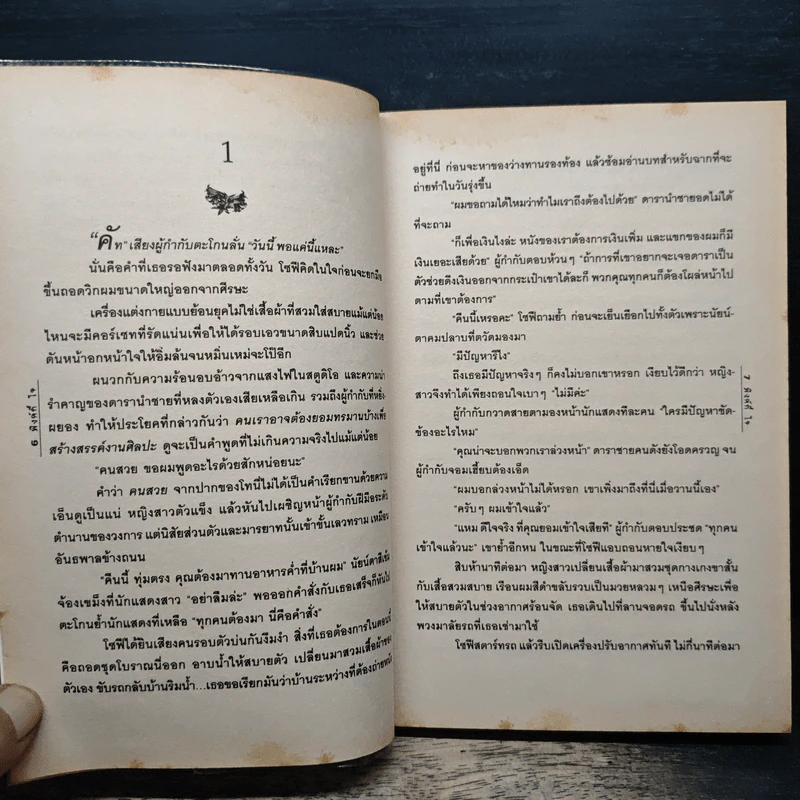 1
“คัท” เสียงผู้กำกับตะโกนลั่น “วันนี้ พอแค่นี้แหละ”
นั่นคือคำที่เธอรอฟังมาตลอดทั้งวัน โซฟีคิดในใจก่อนจะยกมือ
ขึ้นถอดวิกผมขนาดใหญ่ออกจากศีรษะ
เครื่องแต่งกายแบบย้อนยุคไม่ใช่เสื้อผ้าที่สวมใส่สบายแม้แต่น้อย
ไหนจะมีคอร์เซทที่รัดแน่นเพื่อให้ได้รอบเอวขนาดสิบแปดนิ้ว และช่วย
ดันหน้าอกหน้าใจให้อิ่มล้นจนหมิ่นเหม่จะโป๊อีก
ผนวกกับความร้อนอบอ้าวจากแสงไฟในสตูดิโอ และความน่า
รำคาญของดารานำชายที่หลงตัวเองเสียเหลือเกิน รวมถึงผู้กำกับที่หยิ่ง
ผยอง ทำให้ประโยคที่กล่าวกันว่า คนเราอาจต้องยอมทรมานบ้างเพื่อ
สร้างสรรค์งานศิลปะ ดูจะเป็นคำพูดที่ไม่เกินความจริงไปแม้แต่น้อย
“คนสวย ขอผมพูดอะไรด้วยสักหน่อยนะ”
คำว่า คนสวย จากปากของโทนี่ไม่ได้เป็นคำเรียกขานด้วยความ
เอ็นดูเป็นแน่ หญิงสาวตัวแข็ง แล้วหันไปเผชิญหน้าผู้กำกับฝีมือระดับ
ตำนานของวงการ แต่นิสัยส่วนตัวและมารยาทนั้นเข้าขั้นเลวทราม เหมือน
อันธพาลข้างถนน
“คืนนี้ ทุ่มตรง คุณต้องมาทานอาหารค่ำที่บ้านผม” นัยน์ตาสีเข้ม
จ้องเขม็งที่นักแสดงสาว “อย่าลืมล่ะ” พอออกคำสั่งกับเธอเสร็จก็หันไป
ตะโกนย้ำนักแสดงที่เหลือ “ทุกคนต้องมา นี่คือคำสั่ง”
โซฟีได้ยินเสียงคนรอบตัวบ่นกันงึมงำ สิ่งที่เธอต้องการในตอนนี้
คือถอดชุดโบราณนี่ออก อาบน้ำให้สบายตัว เปลี่ยนมาสวมเสื้อผ้าของ
ตัวเอง ขับรถกลับบ้านริมน้ำ...เธอขอเรียกมันว่าบ้านระหว่างที่ต้องถ่ายหนัง
6 พิงค์กี้ ใจ
อยู่ที่นี่ ก่อนจะหาของว่างทานรองท้อง แล้วซ้อมอ่านบทสำหรับฉากที่จะ
ถ่ายทำในวันรุ่งขึ้น
“ผมขอถามได้ไหมว่าทำไมเราถึงต้องไปด้วย” ดารานำชายอดไม่ได้
ที่จะถาม
“ก็เพื่อเงินไงล่ะ หนังของเราต้องการเงินเพิ่ม และแขกของผมก็มี
เงินเยอะเสียด้วย” ผู้กำกับตอบห้วนๆ “ถ้าการที่เขาอยากจะเจอดาราเป็น
ตัวช่วยดึงเงินออกจากกระเป๋าเขาได้ละก็ พวกคุณทุกคนก็ต้องโผล่หน้าไป
ตามที่เขาต้องการ”
“คืนนี้เหรอคะ” โซฟีถามย้ำ ก่อนจะเย็นเยือกไปทั้งตัวเพราะนัยน์-
ตาคมปลาบที่ตวัดมองมา
“มีปัญหารึไง”
ถึงเธอมีปัญหาจริงๆ ก็คงไม่บอกเขาหรอก เงียบไว้ดีกว่า หญิง-
สาวจึงทำได้เพียงถอนใจเบาๆ “ไม่มีค่ะ”
ผู้กำกับกวาดสายตามองหน้านักแสดงทีละคน “ใครมีปัญหาขัด-
ข้องอะไรไหม”
“คุณน่าจะบอกพวกเราล่วงหน้า” ดาราชายคนดังยังโอดครวญ จน
ผู้กำกับจอมเฮี้ยบต้องเอ็ด
“ผมบอกล่วงหน้าไม่ได้หรอก เขาเพิ่งมาถึงที่นี่เมื่อวานนี้เอง”
“ครับๆ ผมเข้าใจแล้ว”
“แหม ดีใจจริง ที่คุณยอมเข้าใจเสียที” ผู้กำกับตอบประชด “ทุกคน
เข้าใจแล้วนะ” เขาย้ำอีกหน ในขณะที่โซฟีแอบถอนหายใจเงียบๆ
สิบห้านาทีต่อมา หญิงสาวเปลี่ยนเสื้อผ้ามาสวมชุดกางเกงขาสั้น
กับเสื้อสวมสบาย เรือนผมสีดำขลับรวบเป็นมวยหลวมๆ เหนือศีรษะเพื่อ
ให้สบายตัวในช่วงอากาศร้อนจัด เธอเดินไปที่ลานจอดรถ ขึ้นไปนั่งหลัง
พวงมาลัยรถที่เธอเช่ามาใช้
โซฟีสตาร์ทรถ แล้วรีบเปิดเครื่องปรับอากาศทันที ไม่กี่นาทีต่อมา
7 พิงค์กี้ ใจ